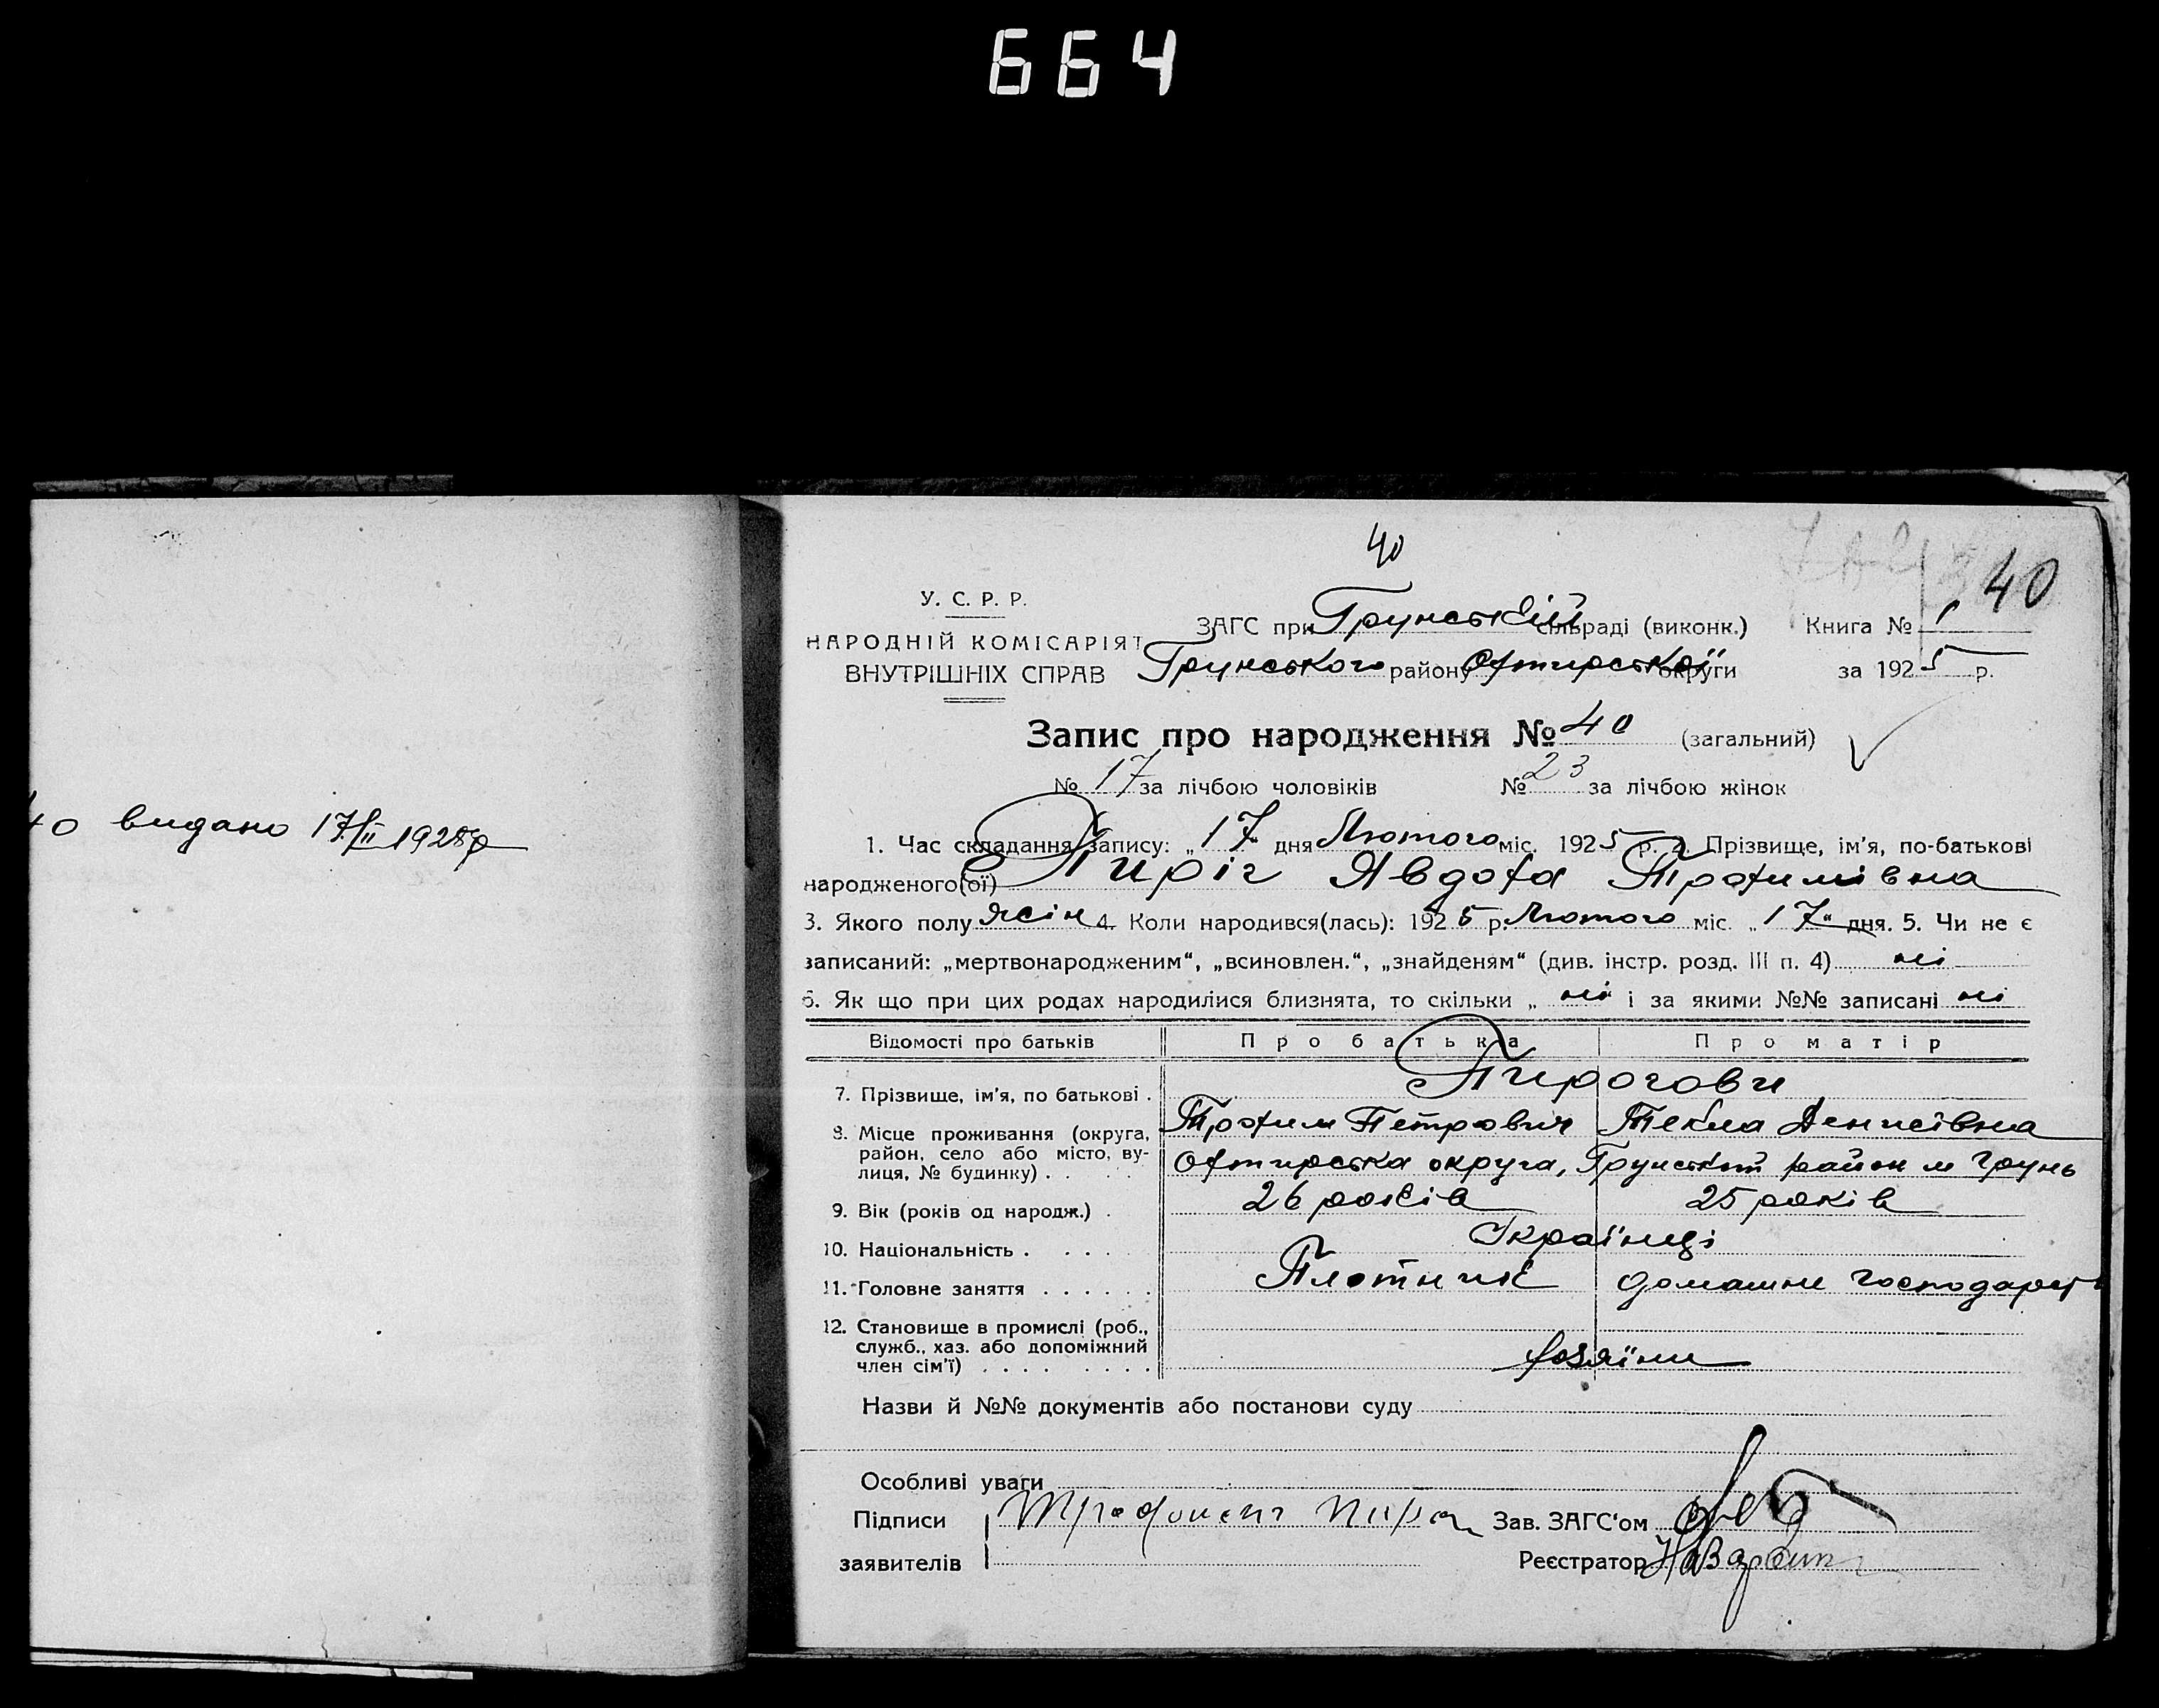 664
40
40
У. С. Р. Р.
НАРОДНІЙ КОМІСАРІЯТ
ВНУТРІШНІХ СПРАВ
ЗАГС при Грунській сільраді (виконк.)
Грунського району Охтирської округи
Книга № 1
за 1925 р.
Запис про народження № 40 (загальний)
№ 17 за лічбою чоловіків № 23 за лічбою жінок
40 видано 17/II 1925р
1. Час складання запису: „17" дня Лютого міс. 1925 р. 2. Прізвище, ім'я, по-батькові
народженого(ої) Пиріг Явдоха Трохимівна
3. Якого полу жін 4. Коли народився(лась): 1925 р. Лютого міс. „17" дня. 5. Чи не є
записаний: „мертвонародженим", „всиновлен.", „знайденям" (див. інстр. розд. III п. 4) ні
6. Як що при цих родах народилися близнята, то скільки „ні" і за якими №№ записані ні
Відомості про батьків Про батька Про матір
7. Прізвище, ім'я, по батькові . Пирогови
Трохим Петрович Текла Денисівна
8. Місце проживання (округа,
район, село або місто, ву-
лиця, № будинку) . . . . Охтирська округа, Грунський район м Грунь
9. Вік (років од народж.) . 26 років 25 років
10. Національність . . . . Українці
11. Головне заняття . . . . . . Плотник домашнє господарст
12. Становище в промислі (роб.,
служб., хаз. або допоміжний
член сім'ї) . . . . . . . . хозяїни
Назви й №№ документів або постанови суду
Особливі уваги
Підписи
заявителів
Зав. ЗАГС'ом
Реєстратор